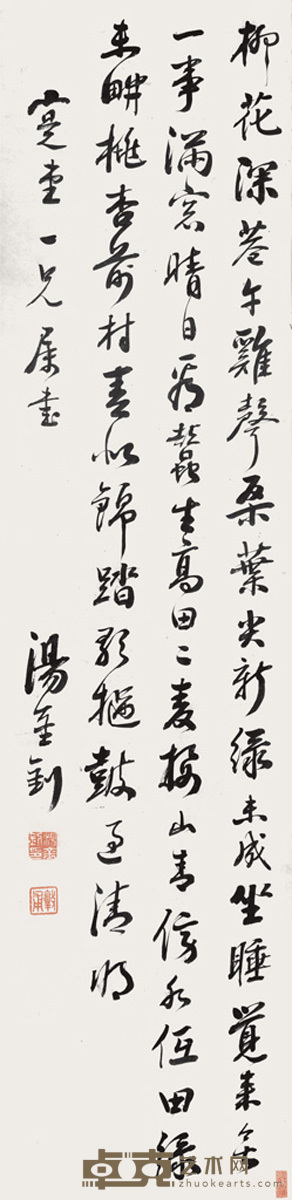 柳花深巷午雞聲桑葉尖新綠未成坐睡覺來余
一事滿窓晴日看蠶生高田二麥接山青傍水低田綠
未畊桃杏前村春似錦踏歌搥鼓過清明
寬堂一兄屬書
湯金釗
卓克艺术网
www.zhuokearts.com